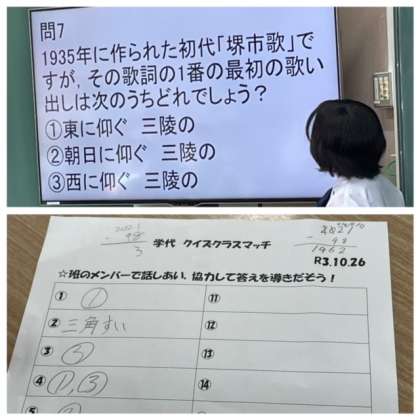 問7
1935年に作られた初代「堺市歌」で
すが、その歌詞の1番の最初の歌い
出しは次のうちどれでしょう？
①東に仰ぐ 三陵の
②朝日に仰ぐ 三陵の
③西に仰ぐ 三陵の
学代 クイズクラスマッチ
- 98
3
2021
- 98
1962
R3.10.26
☆班のメンバーで話しあい、協力して答えを導きだそう!
① ①
② 三角すい
③ ③
④ ①,③
⑤
⑪
⑫
⑬
⑭